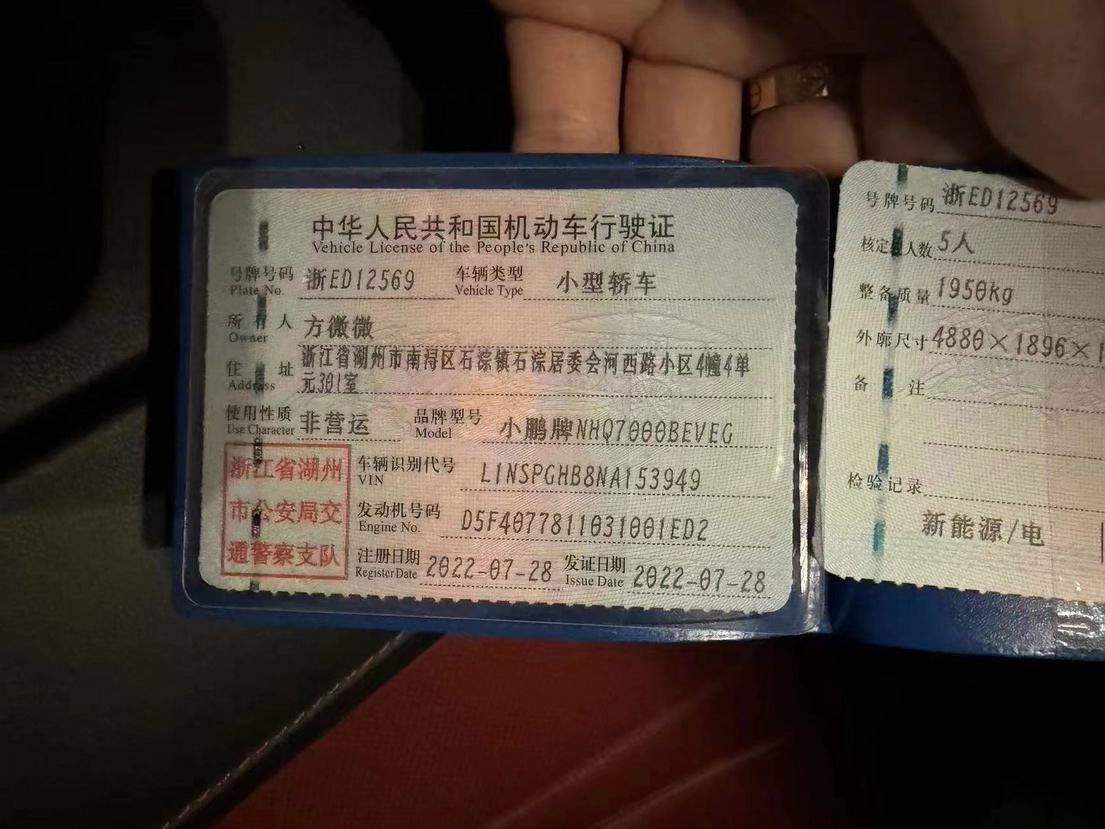 中华人民共和国机动车行驶证
Vehicle License of the People's Republic of China
号牌号码 浙ED12569 车辆类型 小型轿车
Plate No. Vehicle Type
所有人 方微微
Owner
住址 浙江省湖州市南浔区石淙镇石淙居委会河西路小区4幢4单
Address 元301室
使用性质 非营运 品牌型号 小鹏牌NHQ7000BEVEG
Use Character Model
浙江省湖州
市公安局交
通警察支队
车辆识别代号 L1NSPGHB8NA153949
VIN
发动机号码 D5F4077811031001ED2
Engine No.
注册日期 2022-07-28 发证日期 2022-07-28
Register Date Issue Date
号牌号码 浙ED12569
核定 人数 5人
整备质量 1950kg
外廓尺寸 4880×1896×1
备注
检验记录
新能源/电